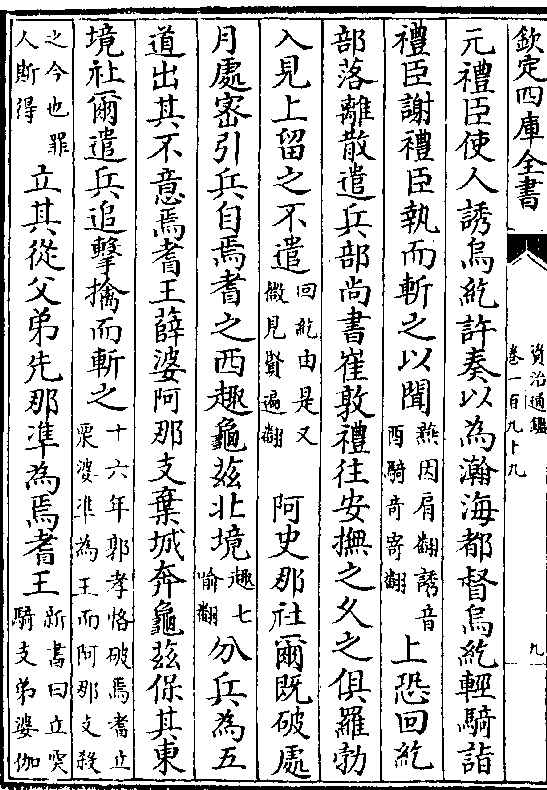 欽定四庫全書
資治通鑑
卷一百九十九
九
元禮臣使人誘烏紇許奏以為瀚海都督烏紇輕騎詣
禮臣謝禮臣執而斬之以聞燕因肩翻誘音酉騎奇寄翻上恐回紇
部落離散遣兵部尚書崔敦禮往安撫之乆之俱羅勃
入見上留之不遣回紇由是又微見賢遍翻阿史那社爾既破處
月處宻引兵自焉耆之西趣龜兹北境趣七喻翻分兵為五
道出其不意焉耆王薛婆阿那支棄城奔龜兹保其東
境社爾遣兵追擊擒而斬之十六年郭孝恪破焉耆立栗婆凖為王而阿那支殺
之今也罪人斯得立其從父弟先那凖為焉耆王新書曰立突騎支弟婆伽